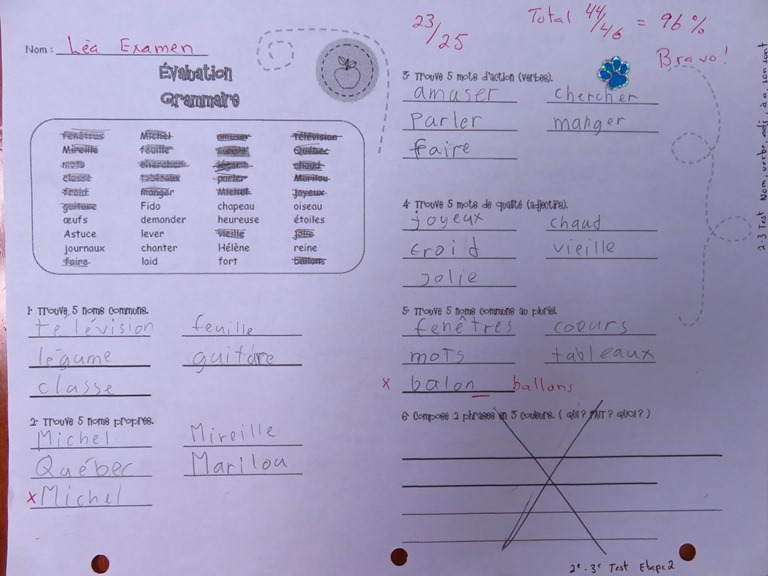 Nom : Léa Examen
Évaluation
Grammaire
23/25
Total 44/46 = 96 %
Bravo !
fenêtres Michel amuser télévision
Mireille feuille Québec
mots chercher légume chaud
classe tableaux parler Marilou
froid manger Michel joyeux
guitare Fido chapeau oiseau
œufs demander heureuse étoiles
Astuce lever vieille jolie
journaux chanter Hélène reine
faire laid fort ballons
1- Trouve 5 noms communs.
télévision feuille
légume guitare
classe
2- Trouve 5 noms propres.
Michel Mireille
Québec Marilou
x Michel
3- Trouve 5 mots d'action (verbes).
amuser chercher
parler manger
faire
4- Trouve 5 mots de qualité (adjectifs).
joyeux chaud
froid vieille
jolie
5- Trouve 5 noms communs au pluriel.
fenêtres coeurs
mots tableaux
x balon_ ballons
6- Compose 2 phrases en 3 couleurs. ( QUI? FAIT? QUOI? )
2e - 3e Test Étape 2
2-3 Test Nom, verbe, adj